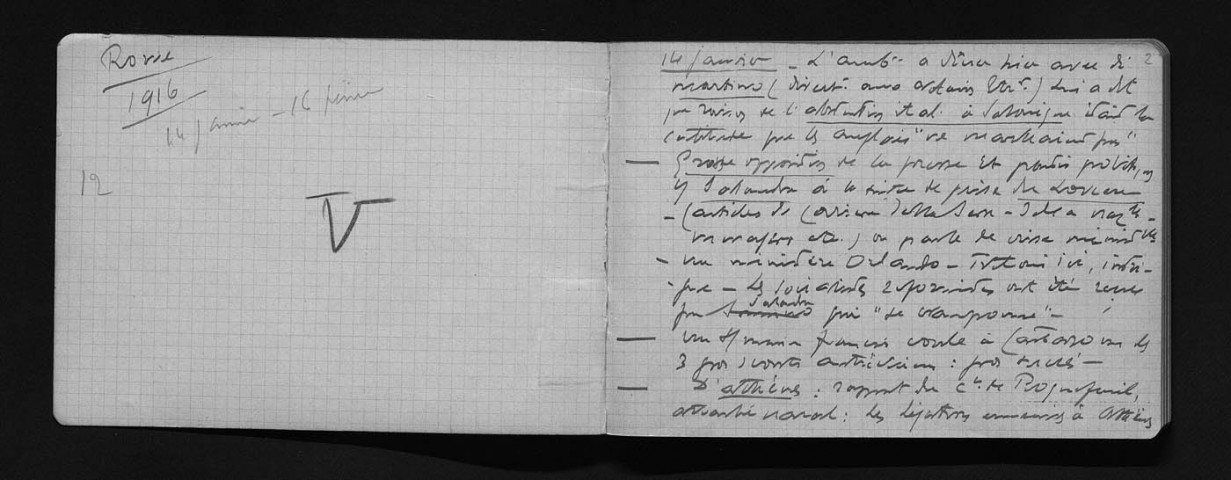 Rome
1916
14 janvier - 16 février
12
V
2
14 janvier - L'amb. a dîné hier avec di
Martino (direct. aux affaires Etr.) lui a dit
que raison de l'abstention ital. à Salonique était la
certitude que les anglais "ne marchaient pas"
Grosse opposition de la presse et partis politiques
à Salandra à la suite de prise de Lovcen
- (articles de Corriere della Sera - Idea Naz.
etc.) on parle de crise minist.
- un ministère Orlando - Tittoni ici, intri-
- gue - Les socialistes réformistes ont été reçus
par Salandra qui "se cramponne" -
un s/marin français coule à Cattaro un des
3 gros scouts autrichiens : gros succès -
D'Athènes : rapport du Ct de Roquefeuil,
attaché naval : les légations ennemies à Athènes